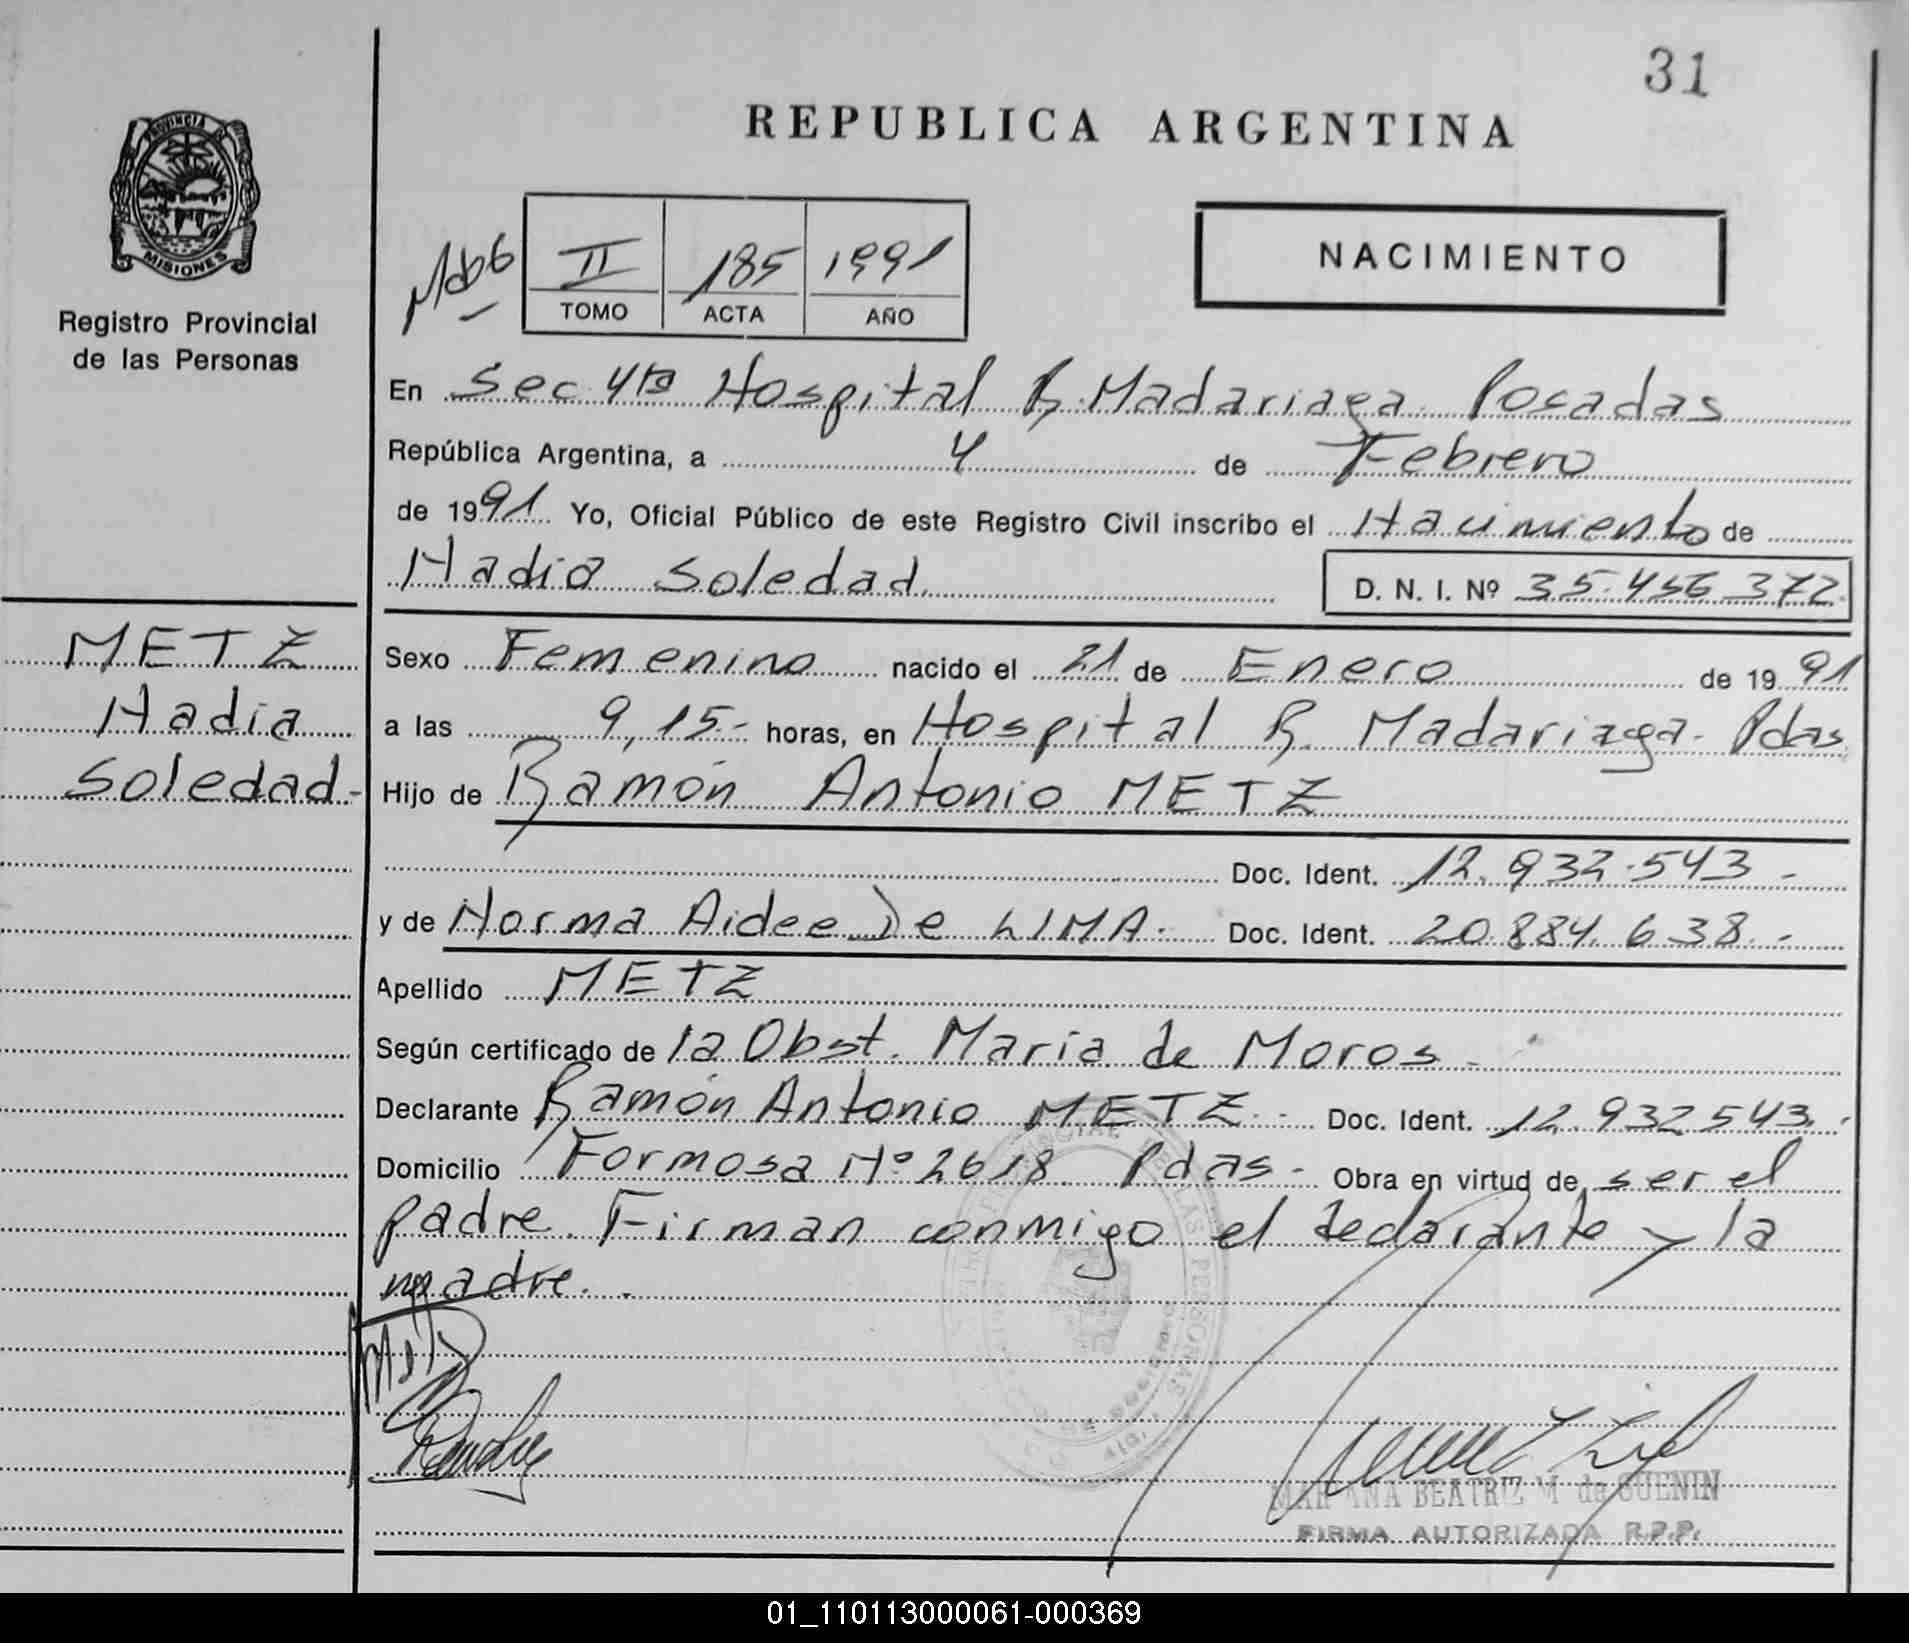 31
PROVINCIA
MISIONES
REPUBLICA ARGENTINA
NACIMIENTO
II 185 1991
TOMO ACTA AÑO
Registro Provincial
de las Personas
En Sec. 4ta Hospital R. Madariaga. Posadas
República Argentina, a 4 de Febrero
de 1991. Yo, Oficial Público de este Registro Civil inscribo el Nacimiento de
Nadia Soledad. D. N. I. Nº 35.456.372
METZ
Nadia
Soledad-
Sexo Femenino nacido el 21 de Enero de 1991
a las 9,15.- horas, en Hospital R. Madariaga. Pdas
Hijo de Ramón Antonio METZ
Doc. Ident. 12.932.543 -
y de Norma Aidee De LIMA. Doc. Ident. 20.884.638.-
Apellido METZ
Según certificado de la Obst. María de Moros -
Declarante Ramón Antonio METZ.- Doc. Ident. 12.932543.-
Domicilio Formosa Nº 2618 Pdas - Obra en virtud de ser el
padre. Firman conmigo el declarante y la
madre. -
MARIANA BEATRIZ M de GUENIN
FIRMA AUTORIZADA R.P.P.
01_110113000061-000369